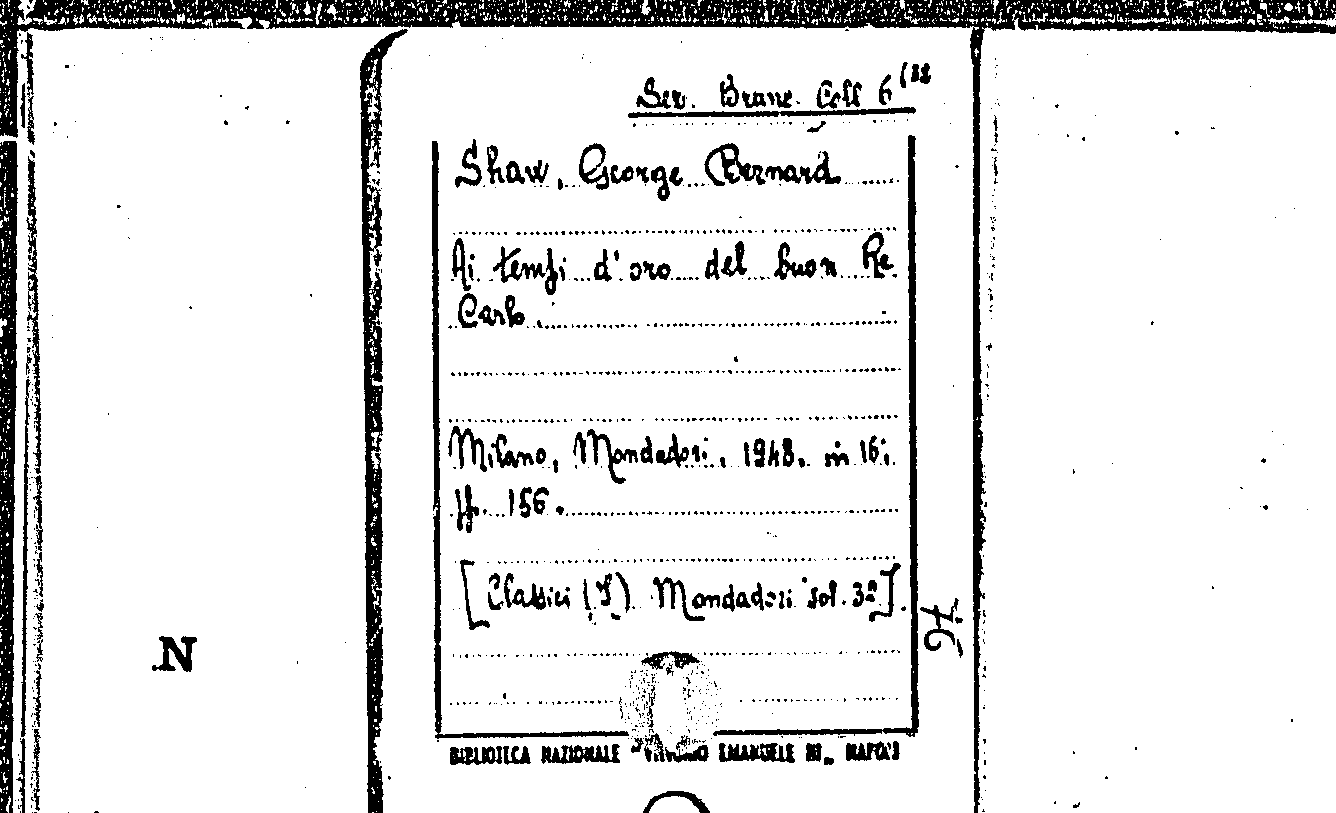 Ser. Branc. Coll 6 (32
Shaw, George Bernard
Ai tempi d'oro del buon Re
Carlo.
Milano, Mondadori, 1948. in 16;
pp. 156.
[Classici (I) Mondadori vol. 32].
N
BIBLIOTECA NAZIONALE "VITTORIO EMANUELE III" NAPOLI